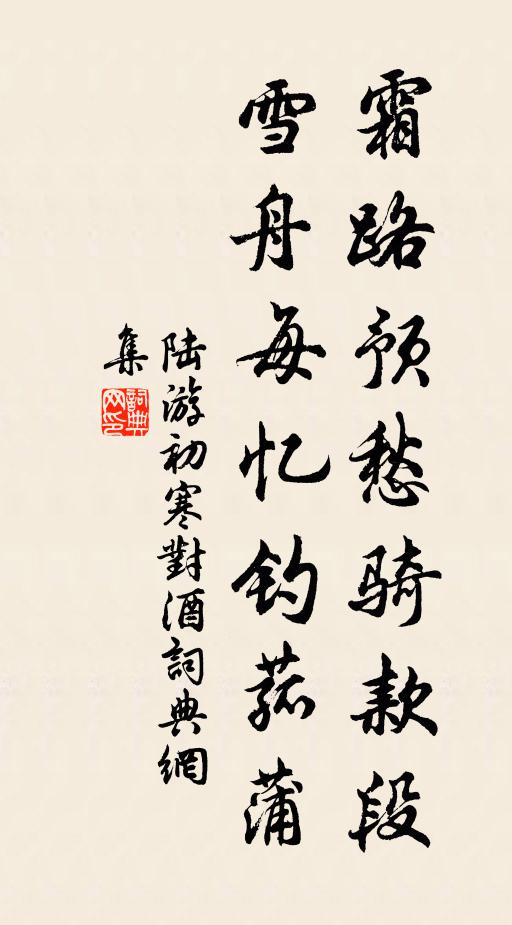 霜路预愁骑款段
雪舟每忆钓菰蒲
陆游初寒對酒詞典網
集
詞典网印